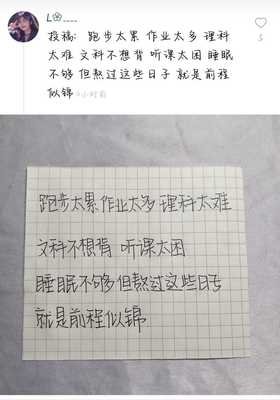 L🌸____
投稿: 跑步太累 作业太多 理科
太难 文科不想背 听课太困 睡眠
不够 但熬过这些日子 就是前程
似锦 9小时前
5
跑步太累 作业太多 理科太难
文科不想背 听课太困
睡眠不够但熬过这些日子
就是前程似锦